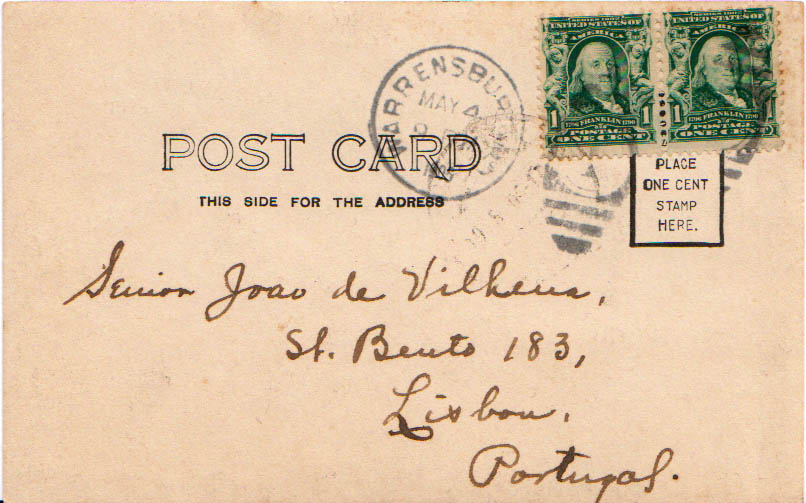 SERIES 1902
UNITED STATES OF
AMERICA
1 1
1706 FRANKLIN 1790
POSTAGE
ONE CENT
SERIES 1902
UNITED STATES OF
AMERICA
1 1
1706 FRANKLIN 1790
POSTAGE
ONE CENT
WARRENSBURG
MAY 4
MO.
POST CARD
THIS SIDE FOR THE ADDRESS
PLACE
ONE CENT
STAMP
HERE.
Senior Joao de Vilhena,
St. Bento 183,
Lisbon,
Portugal.